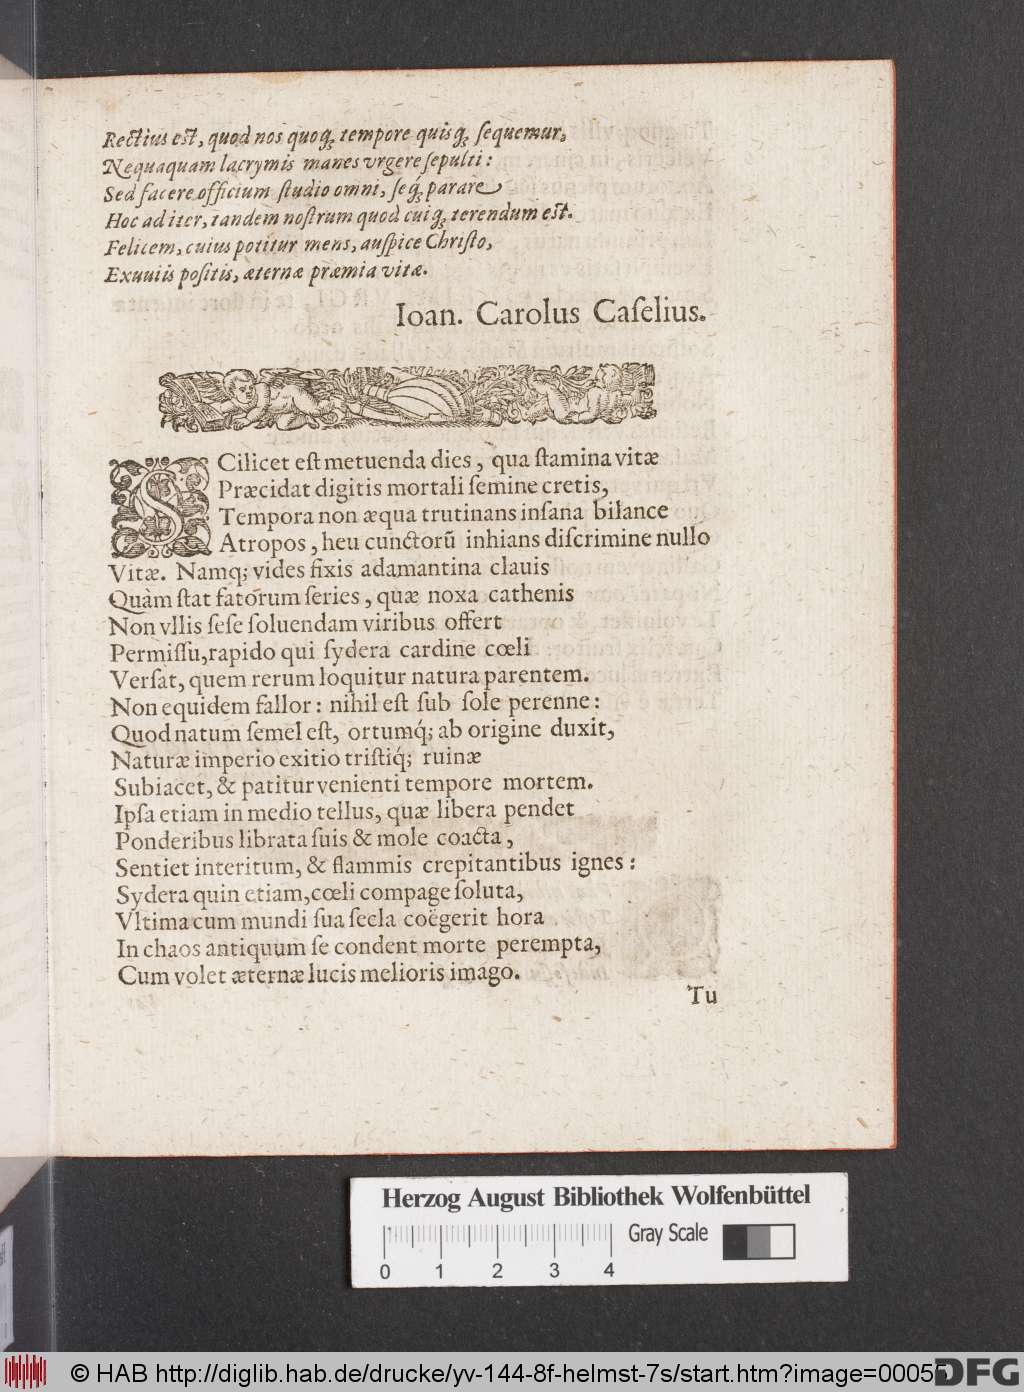 Rectius est, quod nos quoq́; tempore quisq́; ſequemur,
Nequaquam lacrymis manes vrgere ſepulti:
Sed facere officium ſtudio omni, ſeq́; parare
Hoc ad iter, tandem noſtrum quod cuiq́; terendum est.
Felicem, cuius potitur mens, auſpice Chriſto,
Exuuiis poſitis, æternæ præmia vitæ.
Ioan. Carolus Caſelius.
SCilicet eſt metuenda dies, qua ſtamina vitæ
Præcidat digitis mortali ſemine cretis,
Tempora non æqua trutinans inſana bilance
Atropos, heu cunctorũ inhians diſcrimine nullo
Vitæ. Namq; vides fixis adamantina clauis
Quàm ſtat fatorum ſeries, quæ noxa cathenis
Non vllis ſeſe ſoluendam viribus offert
Permiſſu, rapido qui ſydera cardine cœli
Verſat, quem rerum loquitur natura parentem.
Non equidem fallor: nihil eſt ſub ſole perenne:
Quod natum ſemel eſt, ortumq́; ab origine duxit,
Naturæ imperio exitio triſtiq́; ruinæ
Subiacet, & patitur venienti tempore mortem.
Ipſa etiam in medio tellus, quæ libera pendet
Ponderibus librata ſuis & mole coacta,
Sentiet interitum, & flammis crepitantibus ignes:
Sydera quin etiam, cœli compage ſoluta,
Vltima cum mundi ſua ſecla coëgerit hora
In chaos antiquum ſe condent morte perempta,
Cum volet æternæ lucis melioris imago.
Tu
Herzog August Bibliothek Wolfenbüttel
Gray Scale
0 1 2 3 4
© HAB http://diglib.hab.de/drucke/yv-144-8f-helmst-7s/start.htm?image=00055
DFG